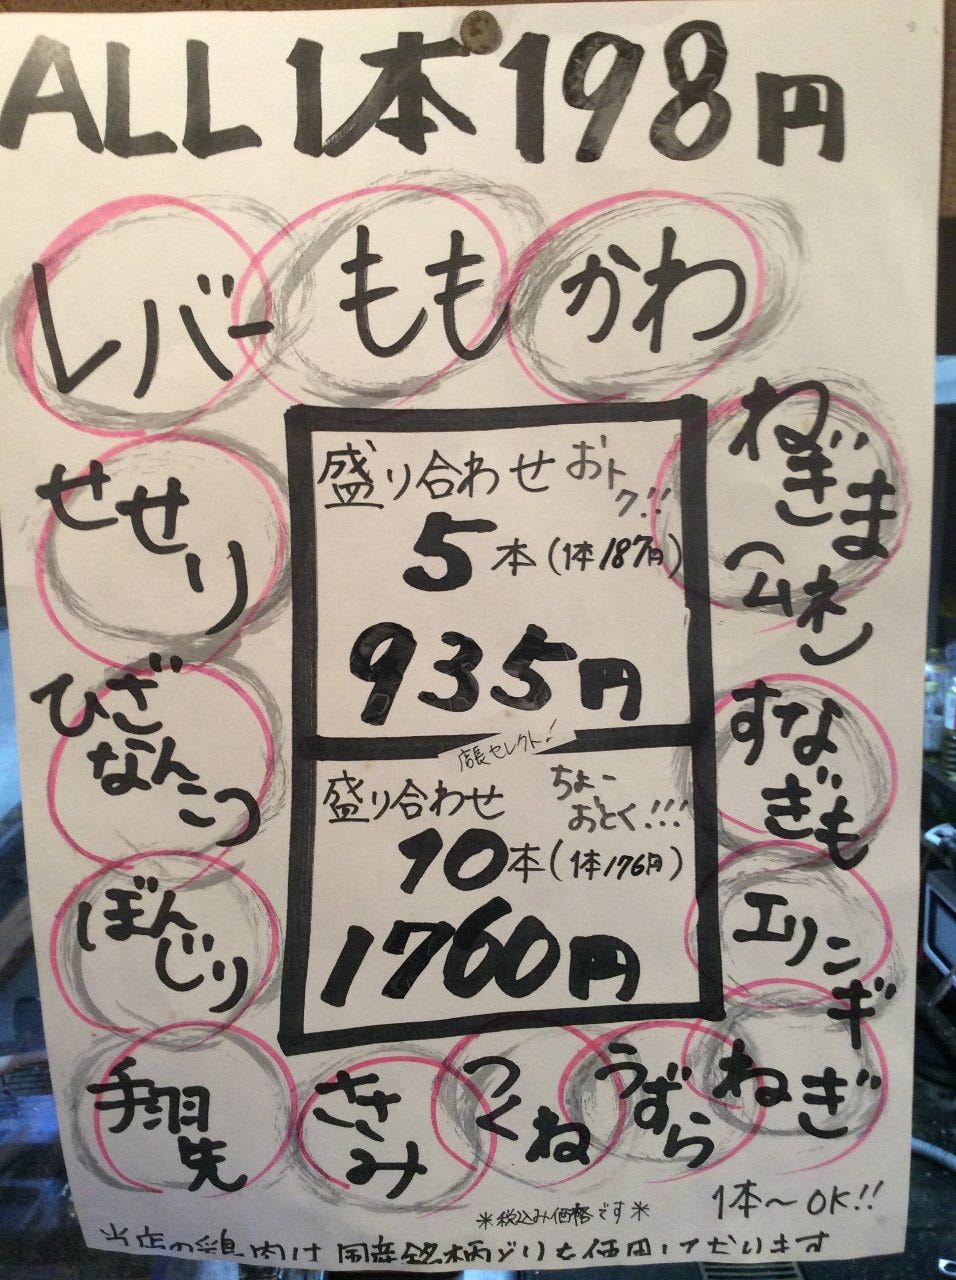 ALL 1本 198円
レバー
もも
かわ
せせり
ねぎま
(ムネ)
ひざ
なんこつ
すな
ぎも
ぼん
じり
エリンギ
盛り合わせ おトク!!
5本(1本187円)
935円
店長セレクト!
盛り合わせ ちょー
おとく!!!
10本(1本176円)
1760円
手羽
先
ささみ
つくね
うずら
ねぎ
1本〜OK!!
*税込み価格です*
当店の鶏肉は国産銘柄どりを使用しております